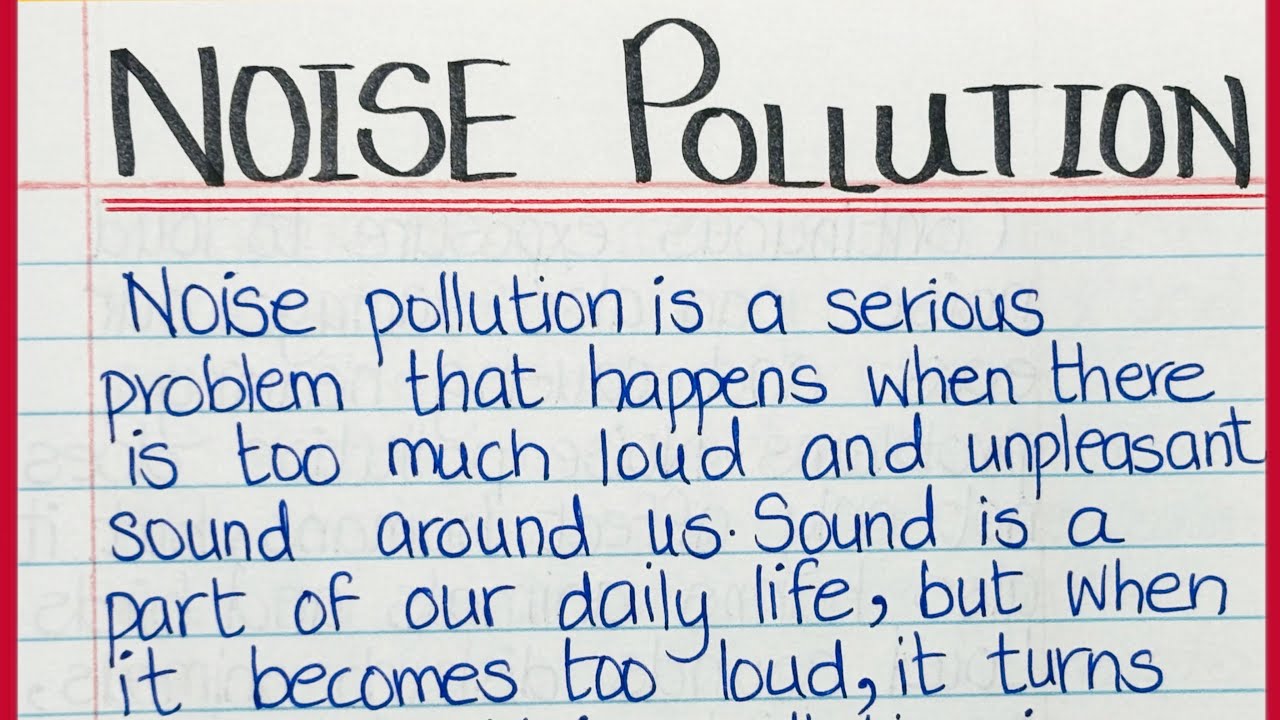 NOISE POLLUTION
Noise pollution is a serious
problem that happens when there
is too much loud and unpleasant
sound around us. Sound is a
part of our daily life, but when
it becomes too loud, it turns